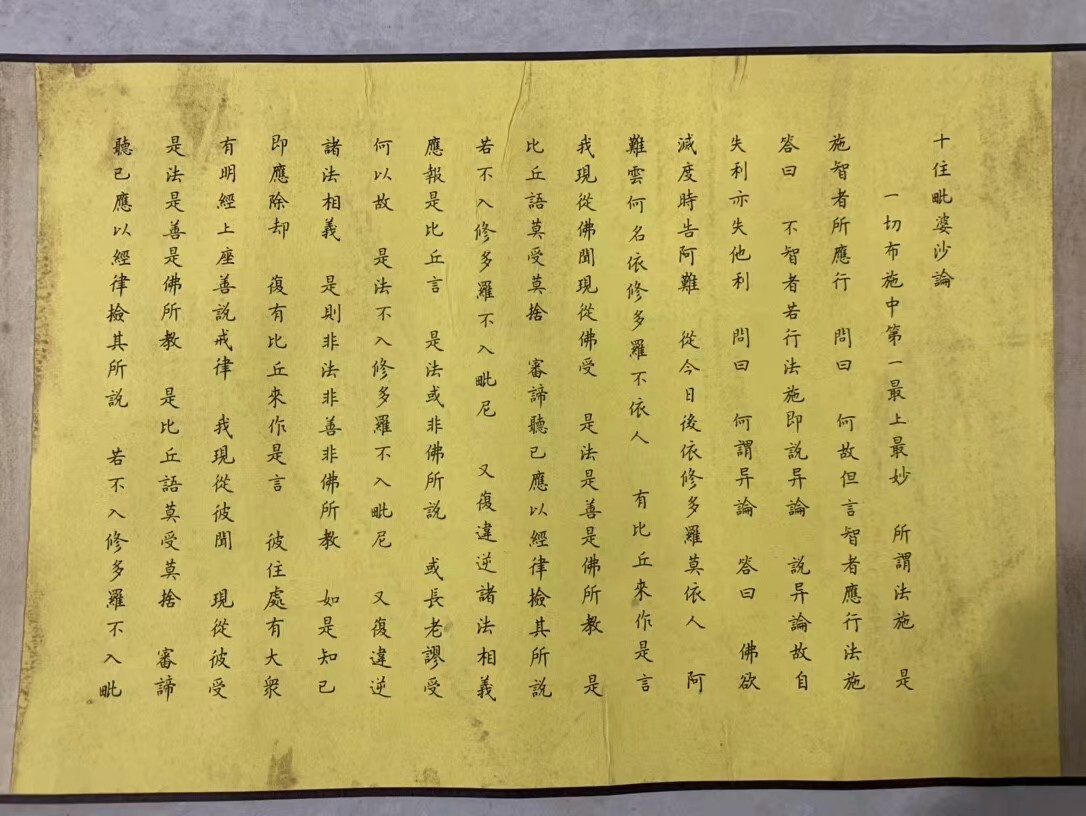 十住毗婆沙論
一切布施中第一最上最妙 所謂法施 是
施智者所應行 問曰 何故但言智者應行法施
答曰 不智者若行法施即説异論 説异論故自
失利亦失他利 問曰 何謂异論 答曰 佛欲
滅度時告阿難 從今日後依修多羅莫依人 阿
難雲何名依修多羅不依人 有比丘來作是言
我現從佛聞現從佛受 是法是善是佛所教 是
比丘語莫受莫捨 審諦聽已應以經律撿其所説
若不入修多羅不入毗尼 又復違逆諸法相義
應報是比丘言 是法或非佛所説 或長老謬受
何以故 是法不入修多羅不入毗尼 又復違逆
諸法相義 是則非法非善非佛所教 如是知已
即應除却 復有比丘來作是言 彼住處有大衆
有明經上座善説戒律 我現從彼聞 現從彼受
是法是善是佛所教 是比丘語莫受莫捨 審諦
聽已應以經律撿其所説 若不入修多羅不入毗